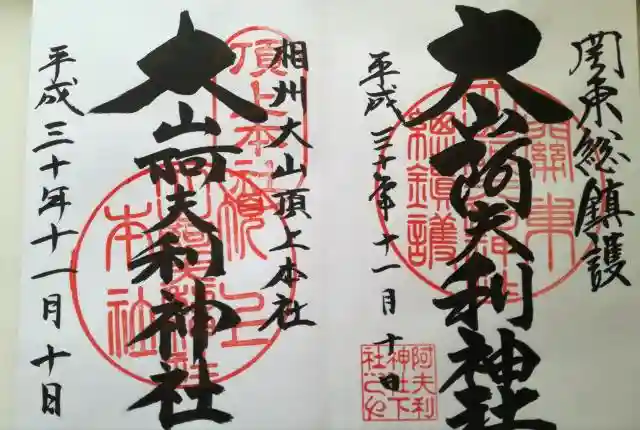 関東総鎮護
大山阿夫利神社
平成三十年十一月十日
関東
総鎮護
阿夫利
神社下
社
相州大山頂上本社
大山阿夫利神社
平成三十年十一月十日
頂上本社
本社